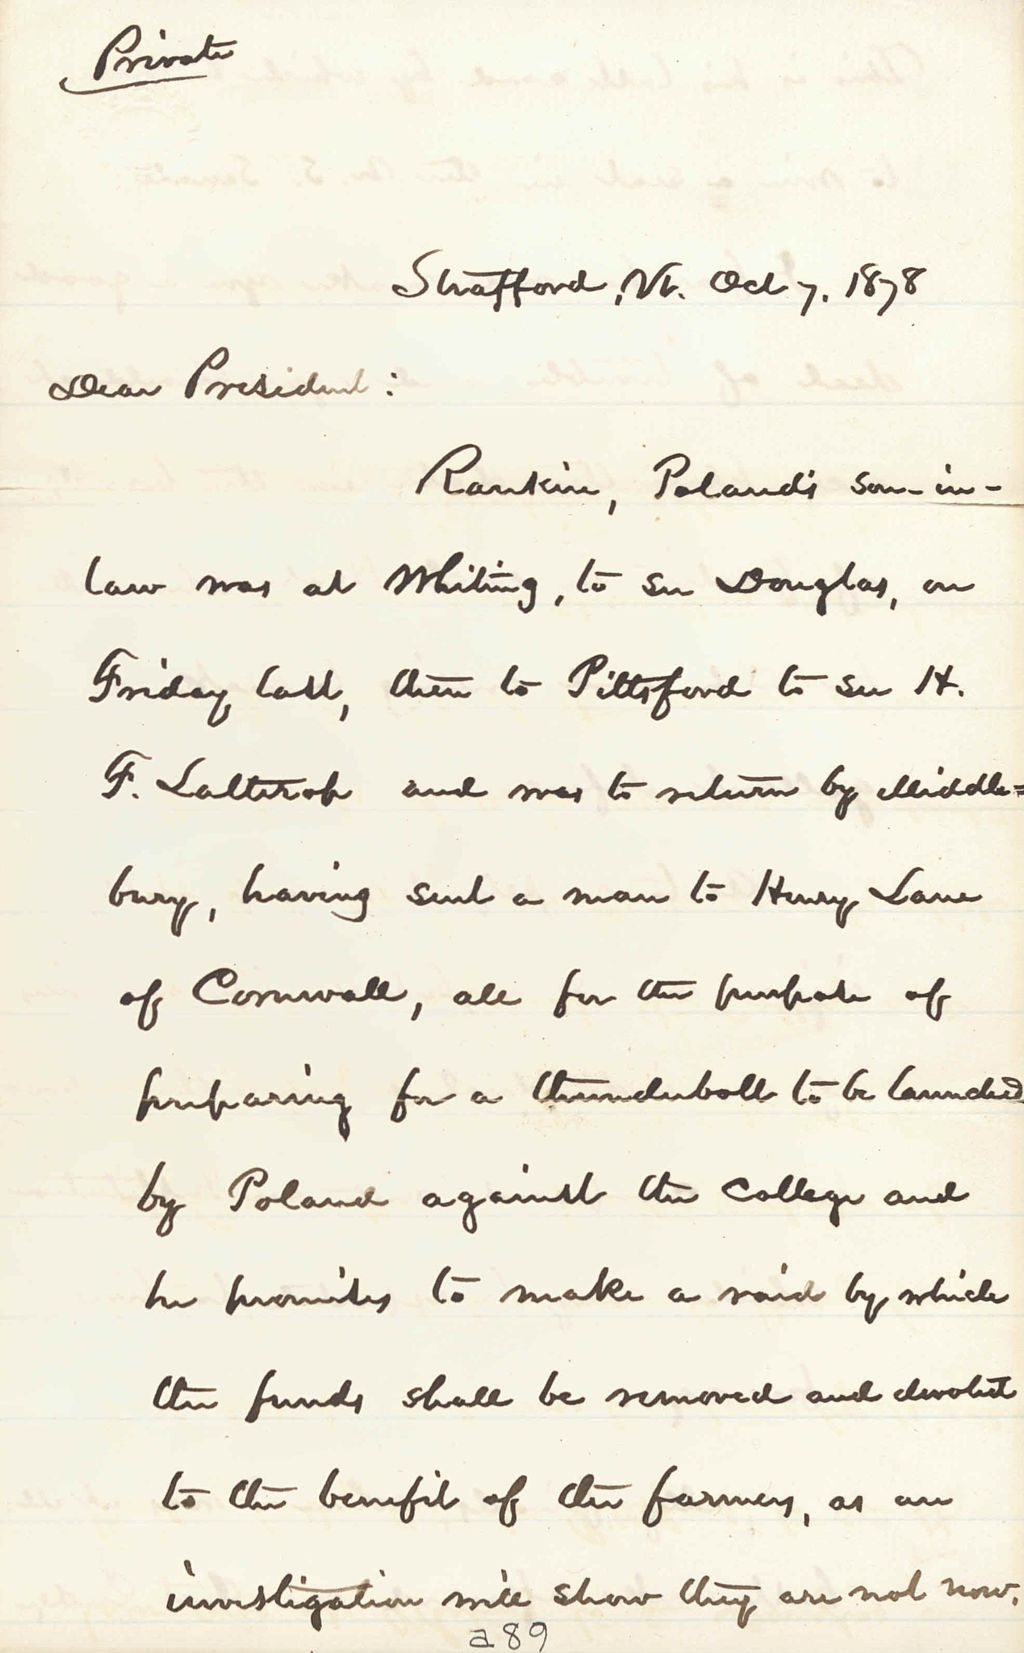 Private
Strafford, Vt. Oct 7, 1878
Dear President:
Rankin, Poland's son-in-
law was at Whiting, to see Douglas, on
Friday last, then to Pittsford to see H.
F. Lothrop and was to return by Middle=
bury, having sent a man to Henry Lane
of Cornwall, all for the purpose of
preparing for a thunderbolt to be launched
by Poland against the College and
he promises to make a raid by which
the funds shall be removed and devoted
to the benefit of the farmers, as an
investigation will show they are not now.
a89